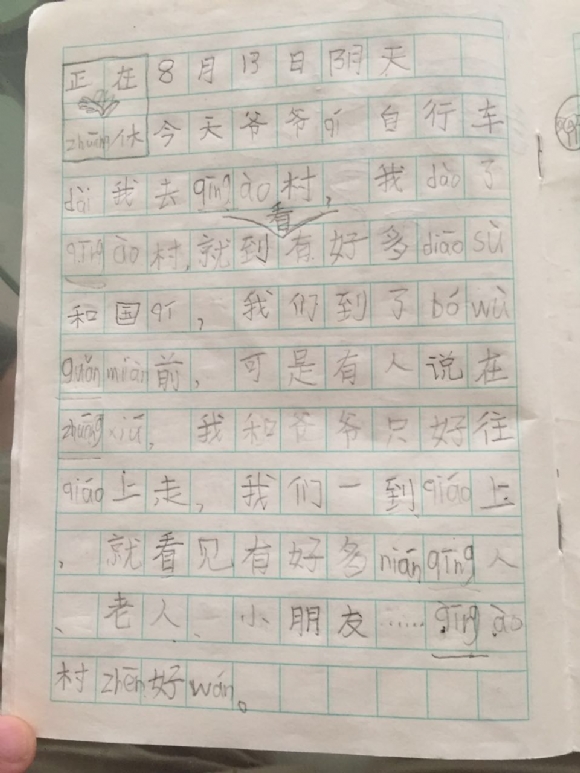 正在 8月13日阴天
zhuāng休 今天爷爷qí自行车
dài我去qīngào村，我dào了
看
qīngào村，就到有好多diāosù
和国qí，我们到了bówù
guǎnmiàn前，可是有人说在
zhuāngxiū，我和爷爷只好往
qiáo上走，我们一到qiáo上
，就看见有好多niánqīng人
、老人、小朋友……qīngào
村zhēn好wán。